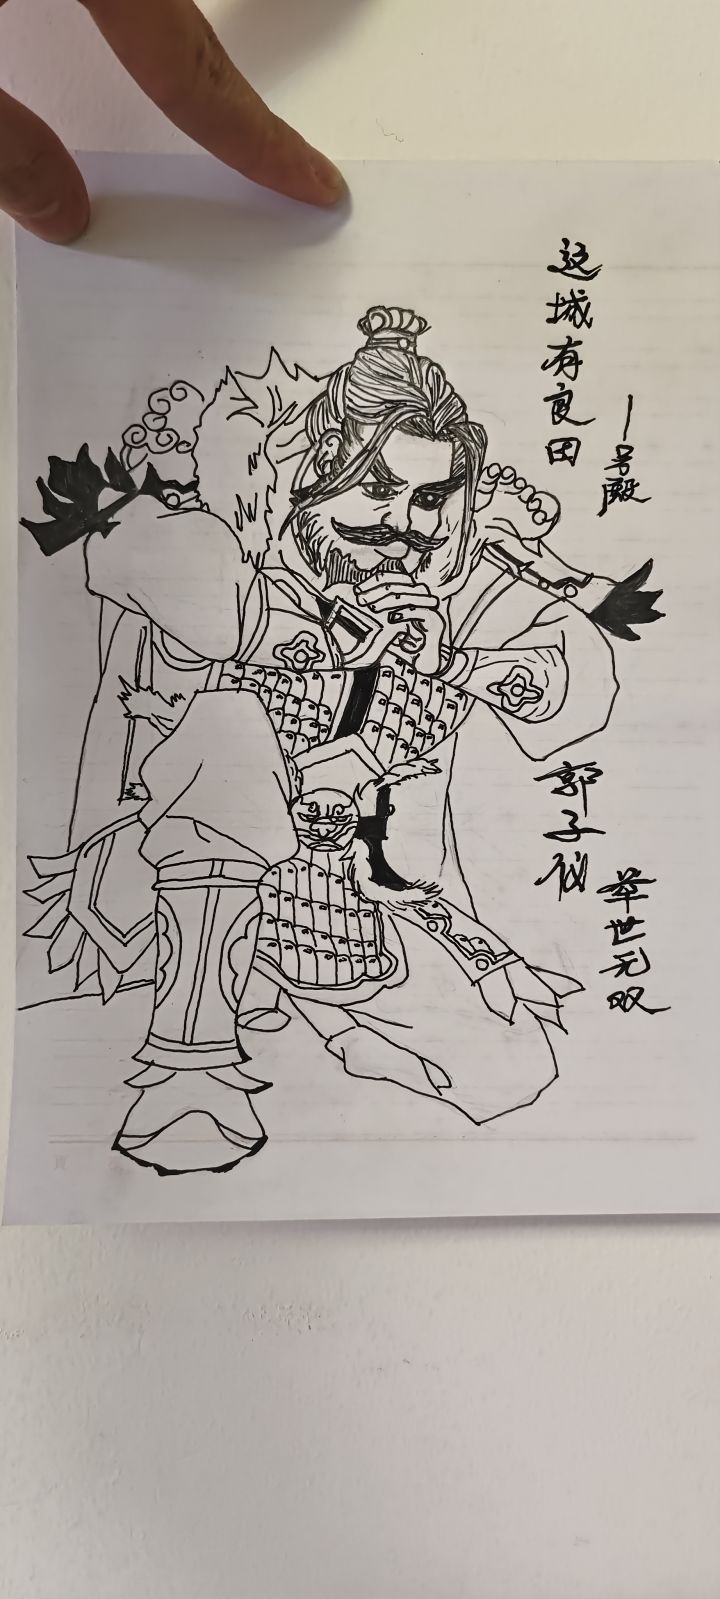 这城有良田
一号殿
郭子仪
举世无双